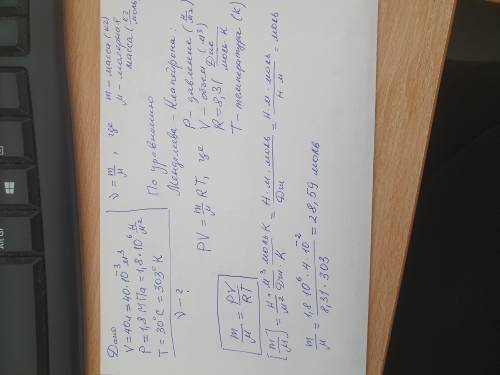 Дано
V=40л=40·10⁻³м³
P=1,8МПа=1,8·10⁶ Н/м²
T=30°C=303°K
ν-?
ν = m/μ , где m-масса(кг)
μ-молярная масса(кг/моль)
По уравнению
Менделеева-Клапейрона:
PV= m/μ RT, где P-давление(Н/м²)
V-объем(м³)
R=8,31 Дж/моль·К
T-температура(К)
m/μ = PV/RT
[m/μ] = Н·м³/м² моль·К/Дж·К = Н·м·моль/Дж = Н·м·моль/Н·м = моль
m/μ = 1,8·10⁶·4·10⁻²/8,31·303 = 28,59 моль
Alt